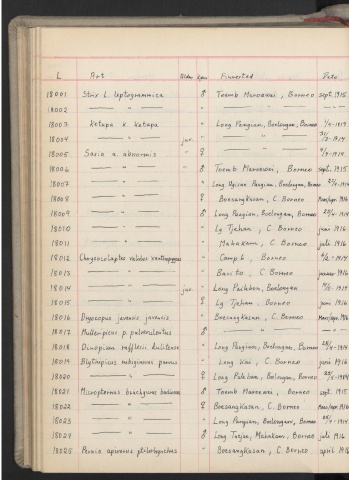 L Art Alder Kjønn Finnested Dato
18001 Strix L. leptogrammica ♂ Toemb Maroewai, Borneo sept. 1915
18002 — " — " — " — — " —
18003 Ketupa k. ketupa " Long Pangian, Boeloengan, Borneo 1914
18004 — " — juv. " — " — 1914
18005 Sasia a. abnormis " ♀ — " — 1914
18006 — " — " ♂ Toemb Maroewai, Borneo sept. 1915
18007 — " — " Long Pangian, Boeloengan, Borneo 1914
18008 — " — ♀ Boesangkasan, C. Borneo Mars/apr. 1916
18009 — " — ♂ Long Pangian, Boeloengan, Borneo 1914
18010 — " — " Lg Tjehan, C. Borneo juni 1916
18011 — " — " Mahakam, C. Borneo juli 1916
18012 Chrysocolaptes validus xanthopygus " Camp 6, Borneo 1914
18013 — " — " Barito, C. Borneo januar 1916
18014 — " — juv. " Long Paleban, Boeloengan 1914
18015 — " — ♀ Lg Tjehan, Borneo juni 1916
18016 Dryocopus javensis javensis " Boesangkasan, C. Borneo Mars/apr. 1916
18017 Mulleripicus p. pulverulentus ♂ — " — — " —
18018 Dinopicus rafflesii dulitensis " Long Pangian, Boeloengan, Borneo 1914
18019 Blythipicus rubiginosus parvus " Long Kai, C. Borneo juni 1916
18020 — " — ♀ Long Paleban, Boeloengan, Borneo 1914
18021 Micropternus brachyurus badiosus ♂ Toemb Maroewai, Borneo sept. 1915
18022 — " — ♀ Boesangkasan, C. Borneo Mars/apr. 1916
18023 — " — " Long Pangian, Boeloengan, Borneo 1914
18024 — " — ♂ Long Tasjan, Mahakam, Borneo juli 1916
18025 Pernis apivorus ptilorhynchus " Boesangkasan, C. Borneo april 1916